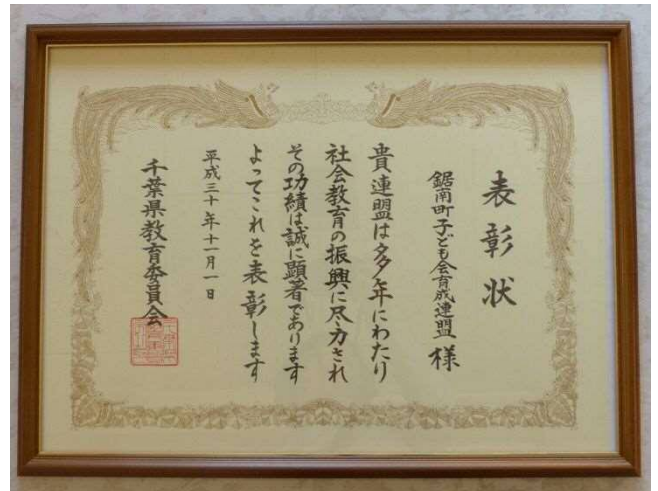 表彰状
鋸南町子ども会育成連盟 様
貴連盟は多年にわたり
社会教育の振興に尽力され
その功績は誠に顕著であります
よってこれを表彰します
平成三十年十一月一日
千葉県教育委員会